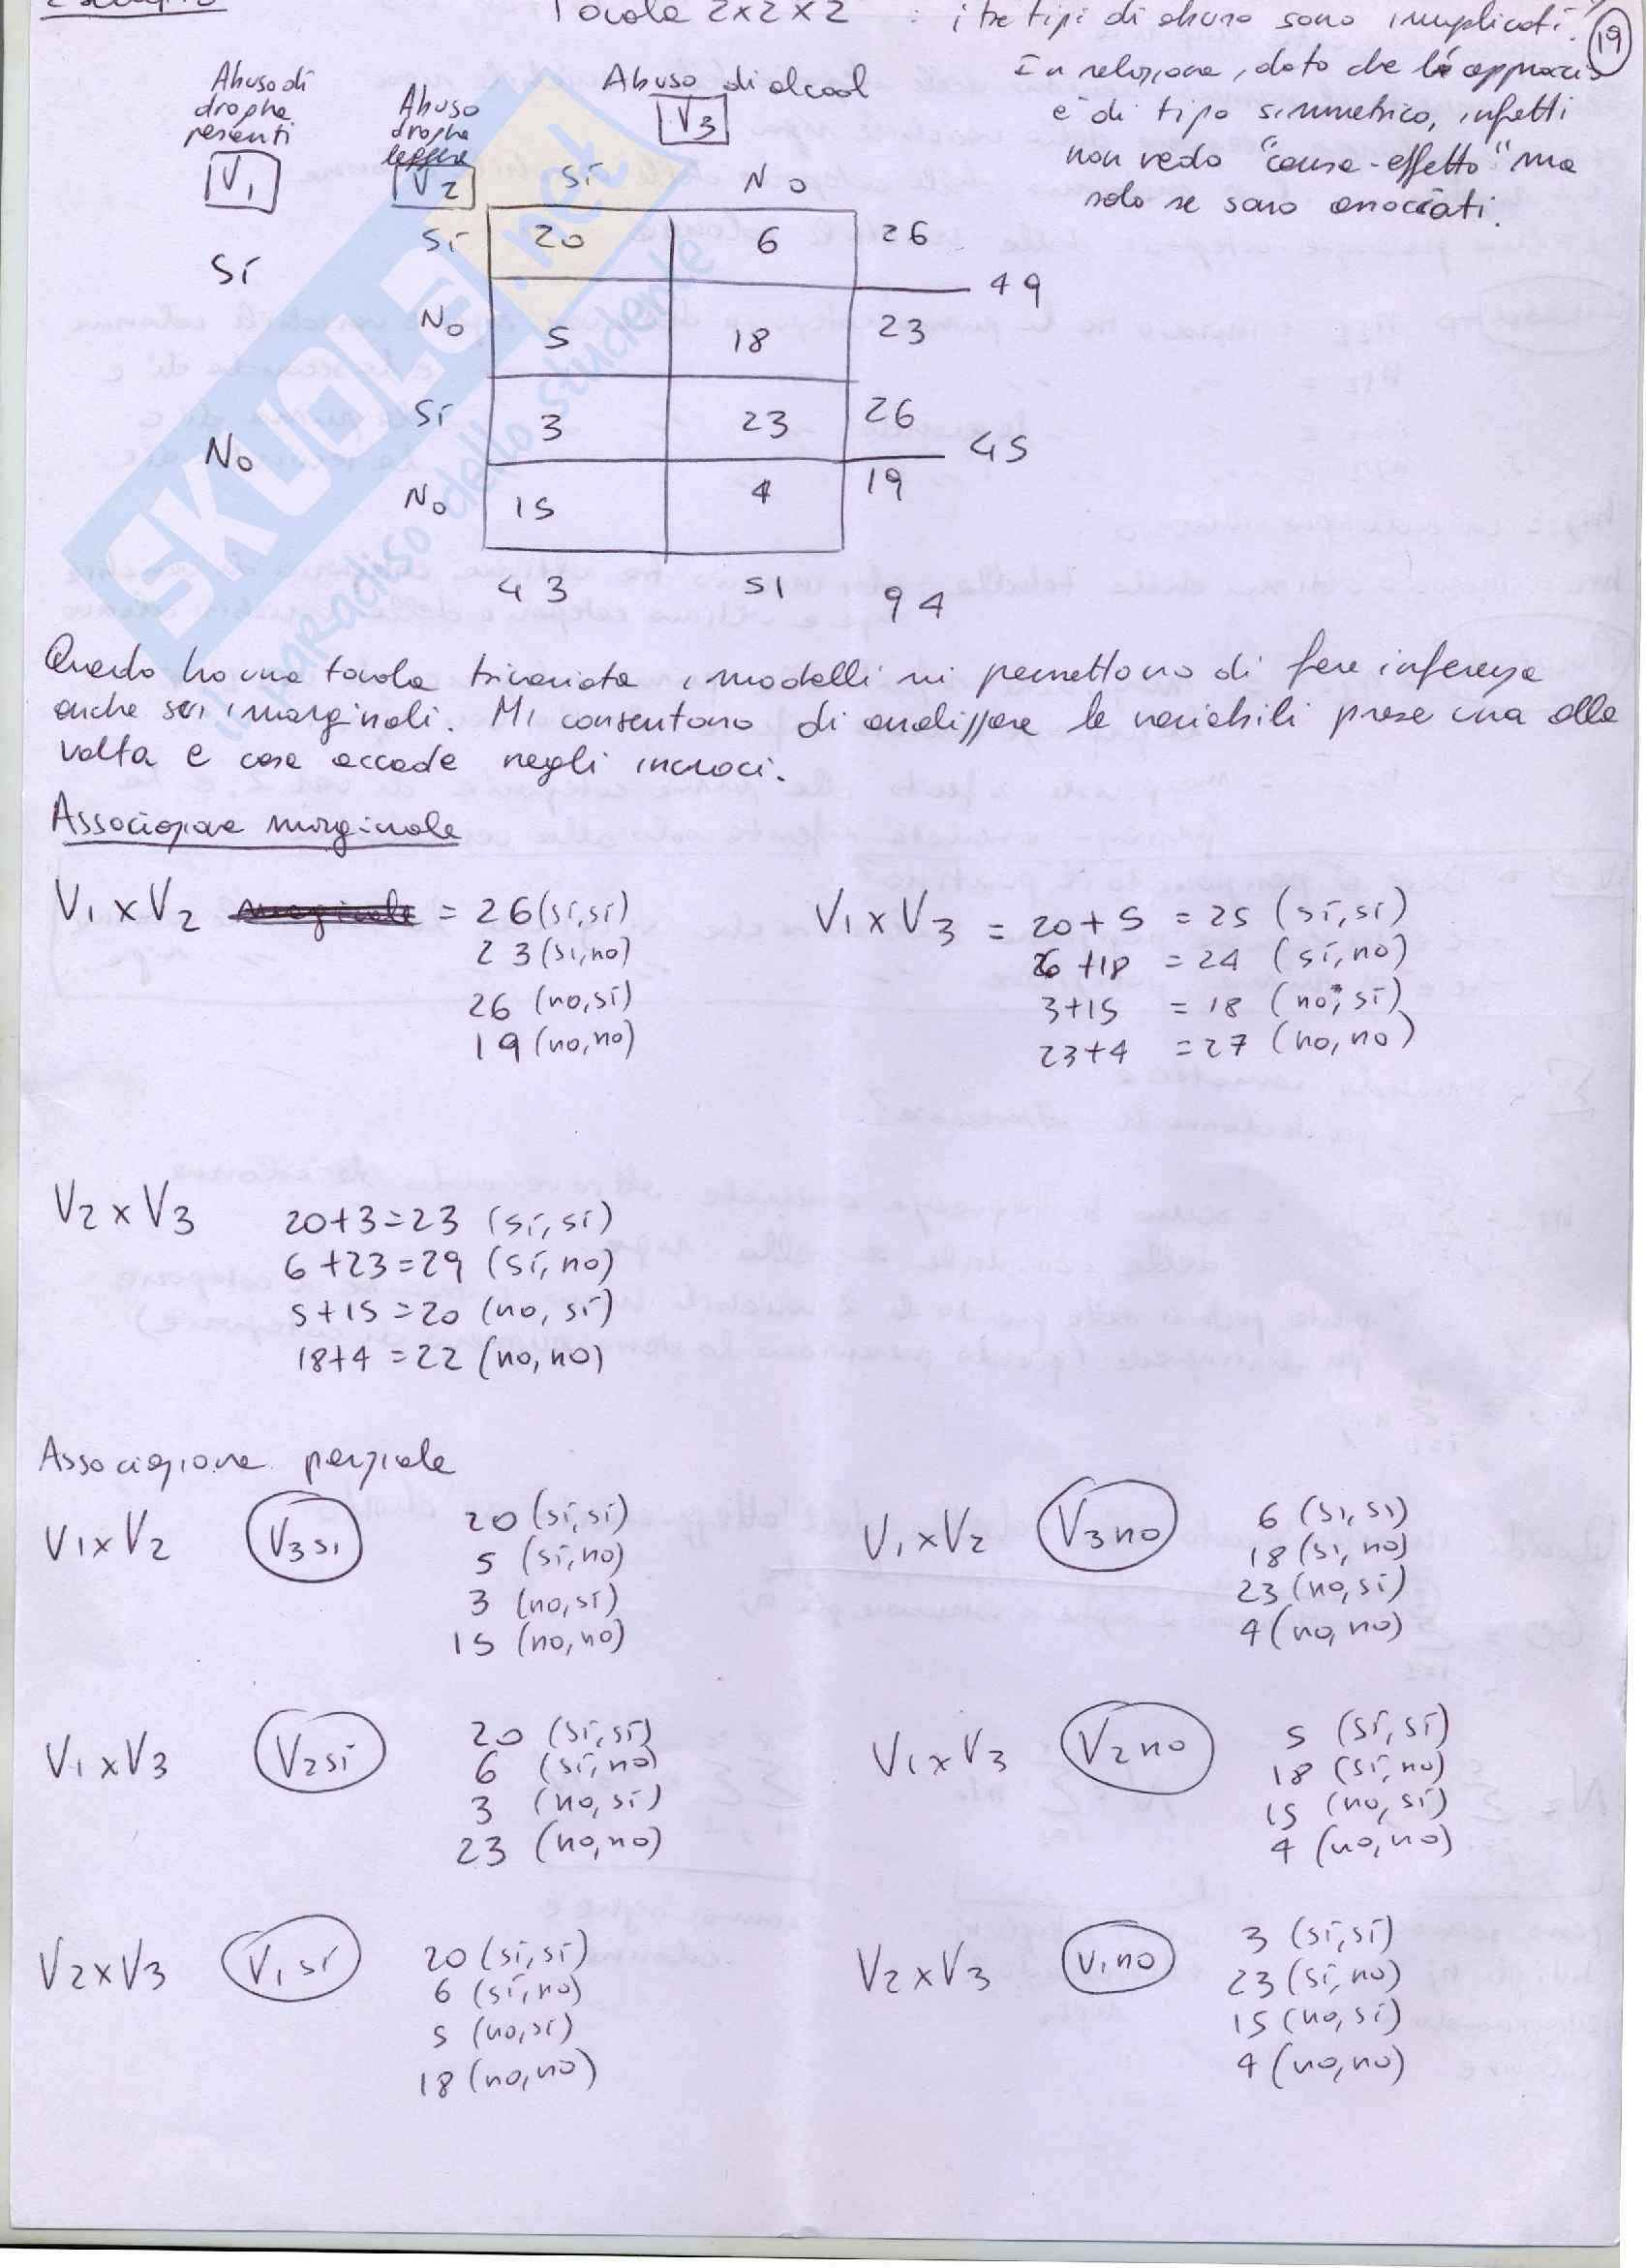 Esempio Tavola 2x2x2 : i tre tipi di abuso sono implicati. 19
In relazione, dato che l'approccio
è di tipo simmetrico, infatti
non vedo "causa-effetto" ma
solo se sono associati.
Abuso di droghe pesenti
V1
Abuso droghe leggere
V2
Abuso di alcool
V3
Sí No
Sí Sí 20 6 26
49
No 5 18 23
No Sí 3 23 26
45
No 15 4 19
43 51 94
SKUOLA.net
il paradiso dello studente
Quando ho una tavola trivariata i modelli mi permettono di fare inferenza
anche sui marginali. Mi consentono di analizzare le variabili prese una alla
volta e cosa accade negli incroci.
Associazione marginale
V1 x V2 = 26 (sí, sí)
23 (sí, no)
26 (no, sí)
19 (no, no)
V1 x V3 = 20+5 = 25 (sí, sí)
6+18 = 24 (sí, no)
3+15 = 18 (no, sí)
23+4 = 27 (no, no)
V2 x V3 20+3=23 (sí, sí)
6+23=29 (sí, no)
5+15=20 (no, sí)
18+4=22 (no, no)
Associazione parziale
V1 x V2 V3 si 20 (sí, sí)
5 (sí, no)
3 (no, sí)
15 (no, no)
V1 x V2 V3 no 6 (si, si)
18 (si, no)
23 (no, sí)
4 (no, no)
V1 x V3 V2 sí 20 (sí, sí)
6 (sí, no)
3 (no, sí)
23 (no, no)
V1 x V3 V2 no 5 (sí, sí)
18 (sí, no)
15 (no, sí)
4 (no, no)
V2 x V3 V1 sí 20 (sí, sí)
6 (sí, no)
5 (no, sí)
18 (no, no)
V2 x V3 V1 no 3 (sí, sí)
23 (sí, no)
15 (no, sí)
4 (no, no)